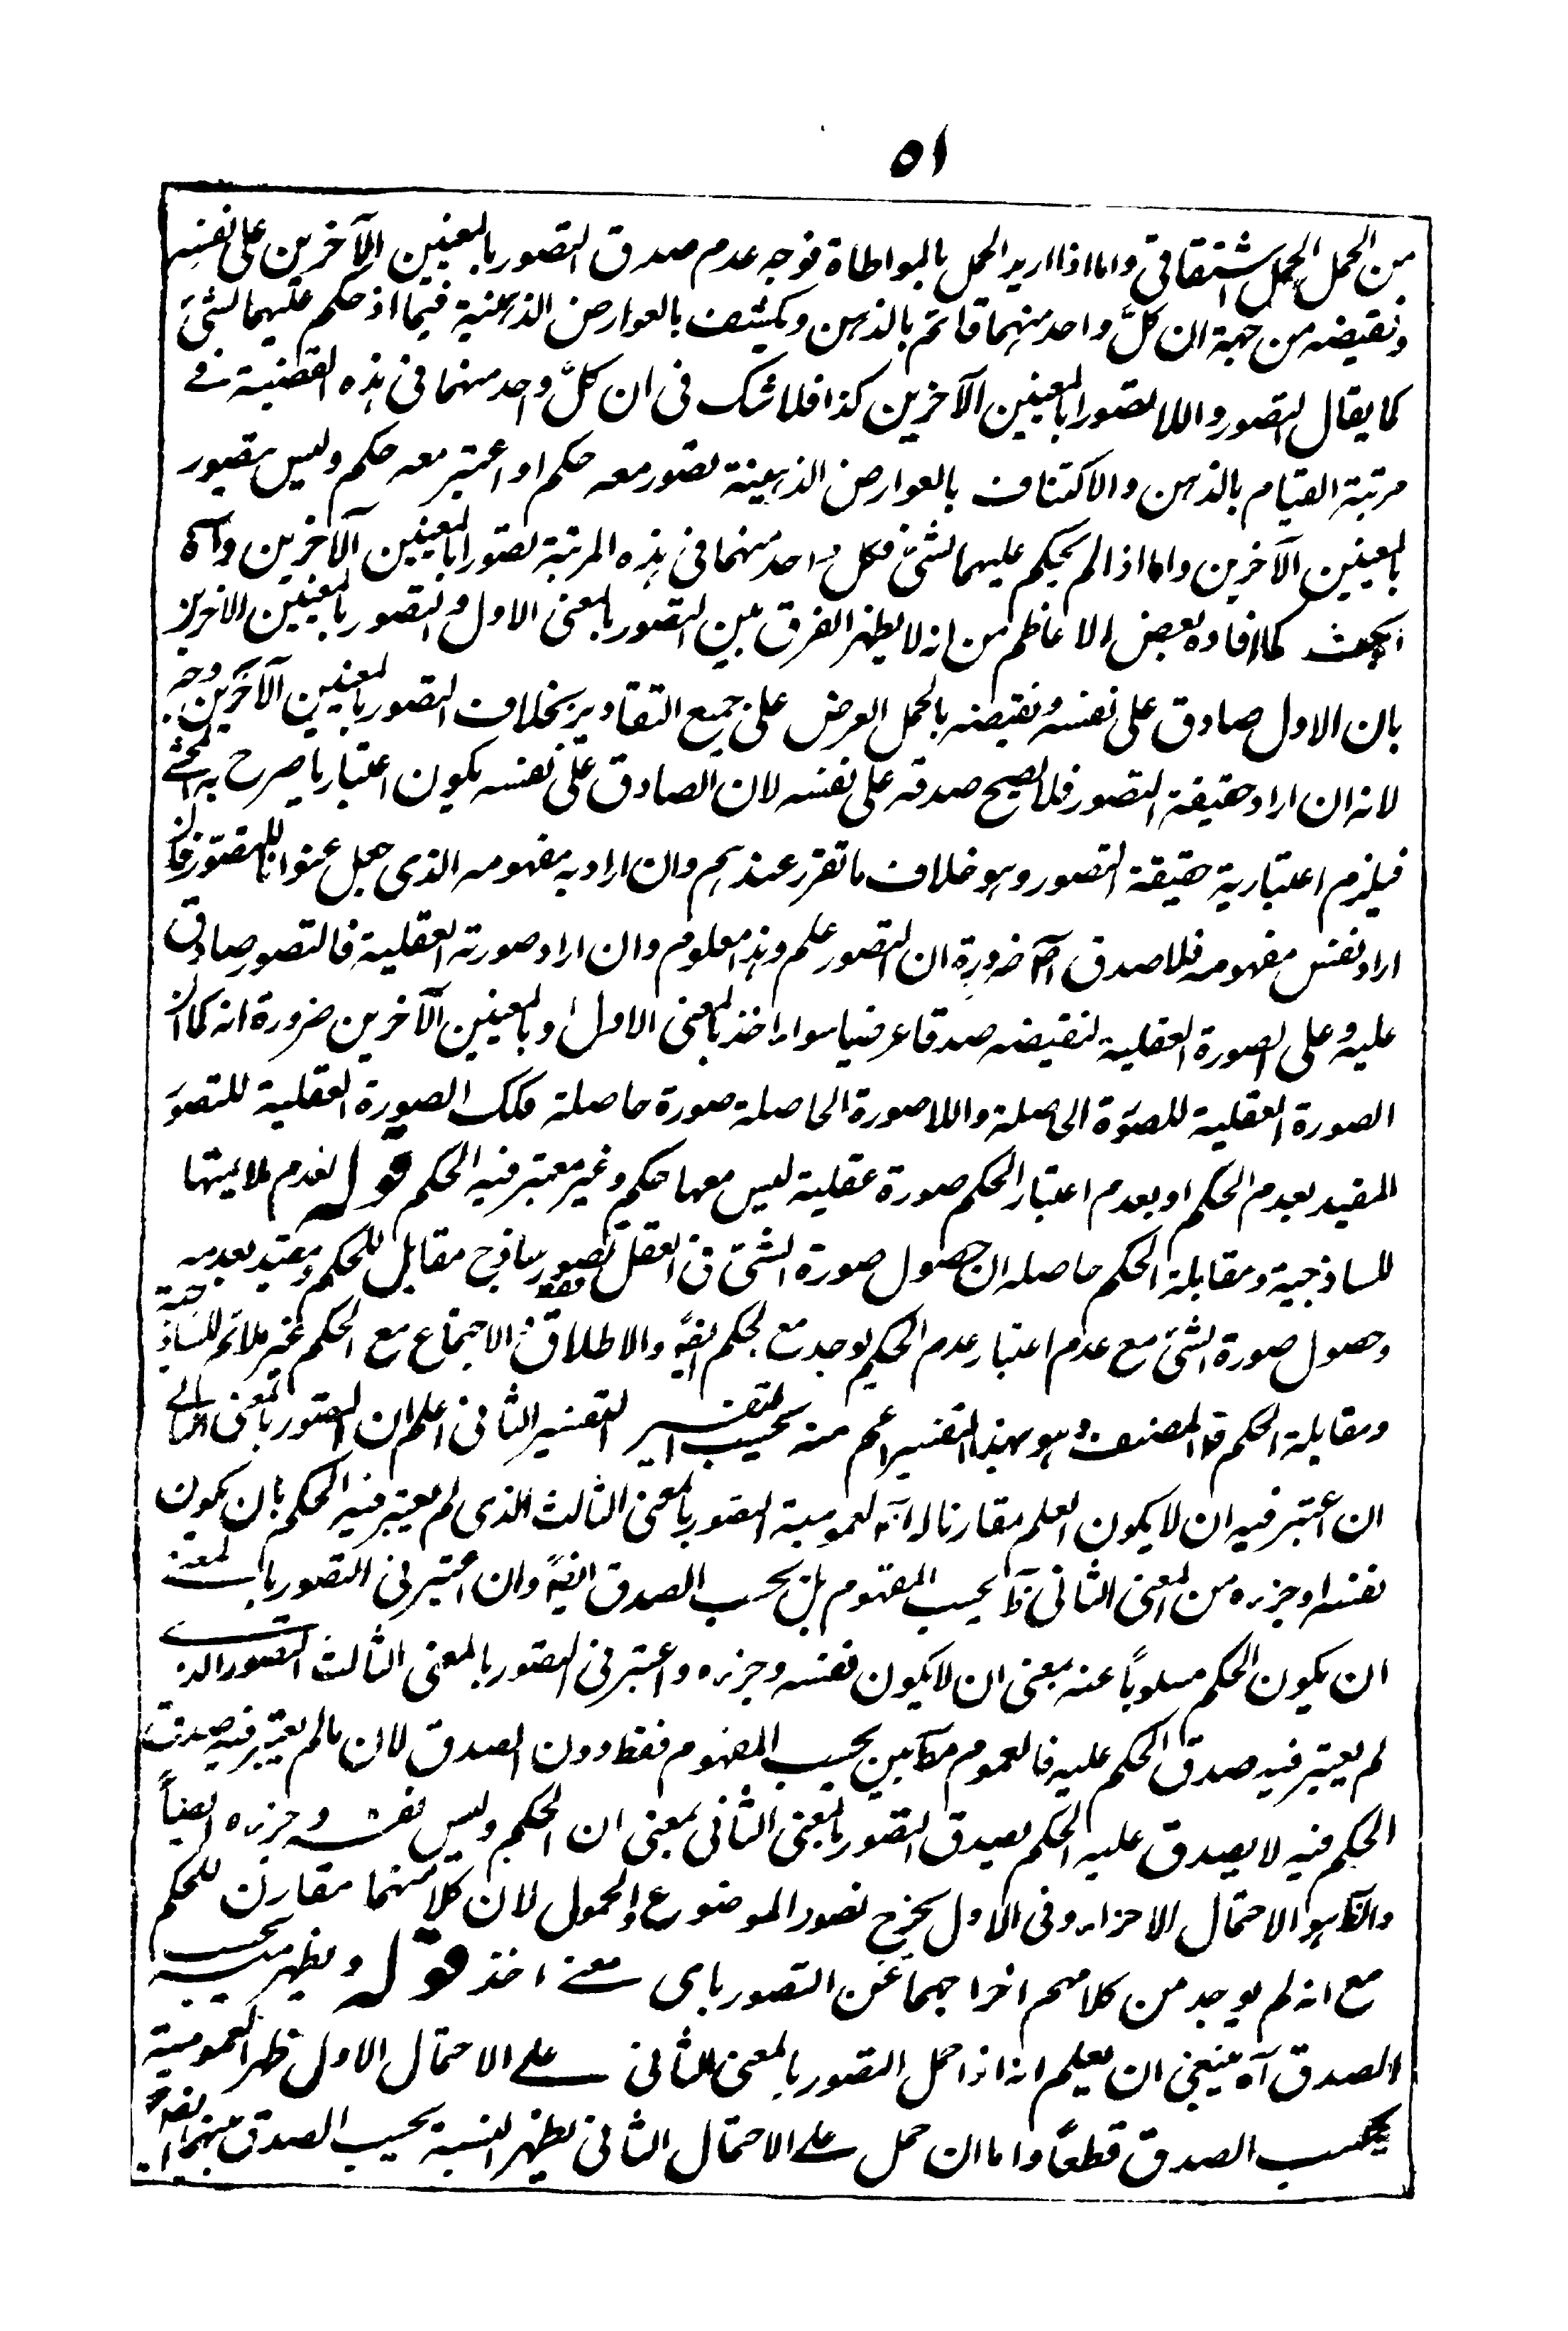 ٥١
من الحمل الحمل اشتقاقي واما اذا اريد الحمل بالمواطاة فوجه عدم صدق التصور بالمعنيين الآخرين على نفسه
ونقيضه من جهة ان كلّ واحد منهما قائم بالذهن ومكتنف بالعوارض الذهنية فيما اذ حكم عليهما بشئ
كما يقال التصور واللاتصور بالمعنيين الآخرين كذا فلا شك فى ان كلّ واحد منهما فى هذه القضية فى
مرتبة القيام بالذهن والاكتناف بالعوارض الذهنية تصور معه حكم او اعتبر معه حكم وليس بتصور
بالمعنيين الآخرين واما اذا لم يحكم عليهما بشئ فكل واحد منهما فى هذه المرتبة تصور بالمعنيين الآخرين
كما افاده بعض الاعاظم من انه لا يظهر الفرق بين التصور بالمعنى الاول والتصور بالمعنيين الآخرين
بان الاول صادق على نفسه ونقيضه بالحمل العرض على جميع التقادير بخلاف التصور بالمعنيين الآخرين وجه
لانه ان اراد حقيقة التصور فلا يصح صدقه على نفسه لان الصادق على نفسه يكون اعتباريا صرح به المحشى
فيلزم اعتبارية حقيقة التصور وهو خلاف ما تقرر عندهم وان اراد به مفهومه الذى جعل عنوانا للتصور فان
اراد نفس مفهومه فلا صدق اصلا ضرورة ان التصور علم وهذا معلوم وان اراد صورته العقلية فالتصور صادق
عليه وعلى الصورة العقلية لنقيضه صدقا عرضيا سواء اخذ بالمعنى الاول او بالمعنيين الآخرين ضرورة انه كما ان
الصورة العقلية للصورة الحاصلة واللاصورة الحاصلة صورة حاصلة فكك الصورة العقلية للتصور
المقيد بعدم الحكم او بعدم اعتبار الحكم صورة عقلية ليس معها حكم وغير معتبر فيه الحكم قوله لعدم ملائمتها
للساذجية ومقابلة الحكم حاصله ان حصول صورة الشئ فى العقل فقط تصور ساذج مقابل للحكم ومقيد بعدمه
وحصول صورة الشئ مع عدم اعتبار عدم الحكم يوجد مع الحكم ايضً والاطلاق والاجتماع مع الحكم غير ملائم للساذجية
ومقابلة الحكم قال المصنف وهو بهذا التفسير اعم منه بحسب التفسير الثانى اعلم ان التصور بالمعنى الثانى
ان اعتبر فيه ان لا يكون العلم مقارنا له آه لعمومية التصور بالمعنى الثالث الذى لم يعتبر فيه الحكم بان يكون
نفسه او جزره من المعنى الثانى ظ بحسب المفهوم بل بحسب الصدق ايضً وان اعتبر فى التصور بالمعنى
ان يكون الحكم مسلوبًا عنه بمعنى ان لا يكون نفسه وجزره واعتبر فى التصور بالمعنى الثالث التصور الذى
لم يعتبر فيه صدق الحكم عليه فالعموم بين بحسب المفهوم فقط دون الصدق لان مالم يعتبر فيه صدق
الحكم فيه لا يصدق عليه الحكم يصدق التصور بالمعنى الثانى بمعنى ان الحكم وليس نفسه وجزره ايضاً
والظ هو الاحتمال الاحزار وفى الاول يخرج تصور الموضوع والمحمول لان كلا منهما مقارن للحكم
مع انه لم يوجد من كلامهم اخراجهما عن التصور باى معنى اخذ قوله ويظهر بحسب
الصدق آه ينبغى ان يعلم انه اذا حمل التصور بالمعنى الثانى على الاحتمال الاول ظهر العمومية
بحسب الصدق قطعًا واما ان حمل على الاحتمال الثانى يظهر النسبة بحسب الصدق بينهما ايضً